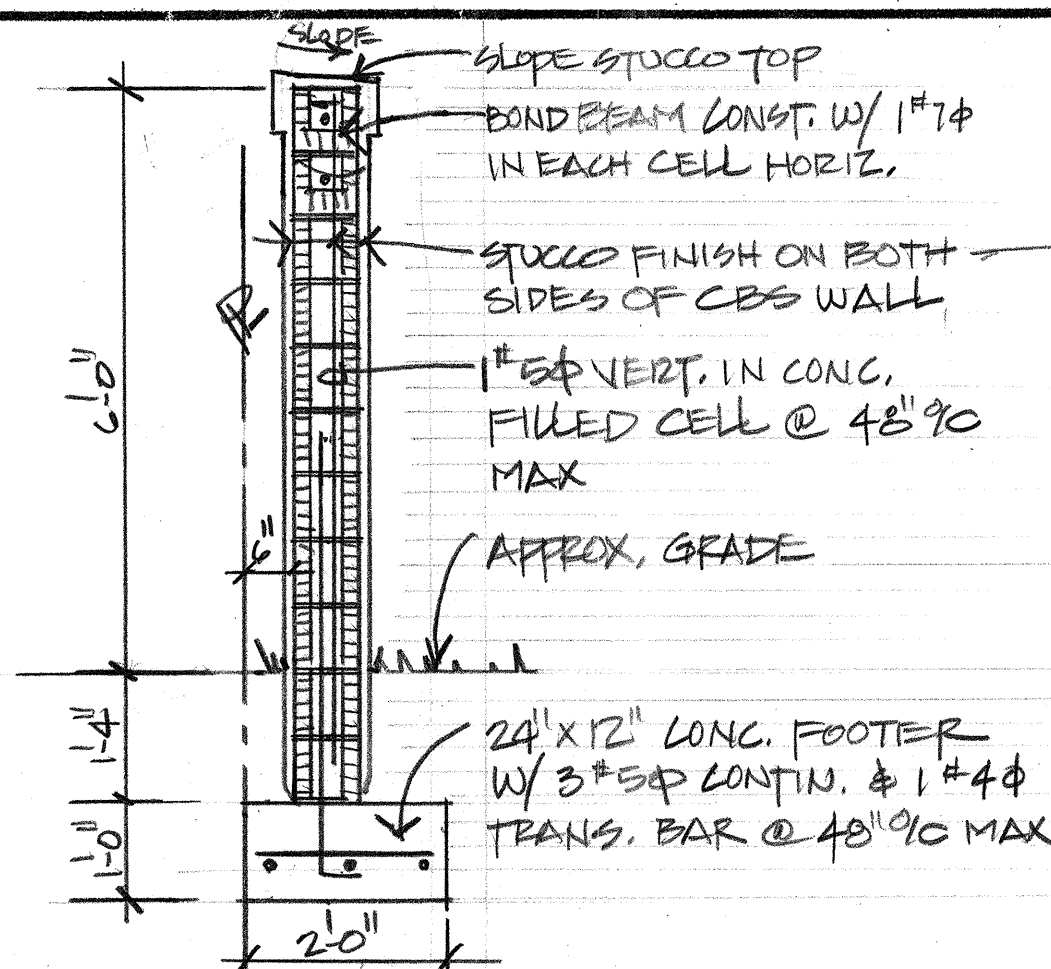 SLOPE
SLOPE STUCCO TOP
BOND BEAM CONST. W/ 1#7ϕ
IN EACH CELL HORIZ.
STUCCO FINISH ON BOTH
SIDES OF CBS WALL
1#5ϕ VERT. IN CONC.
FILLED CELL @ 48" O/C
MAX
APPROX. GRADE
24"X12" CONC. FOOTER
W/ 3#5ϕ CONTIN. & 1#4ϕ
TRANS. BAR @ 48" O/C MAX
6'-0"
6"
1'-4"
1'-0"
2'-0"